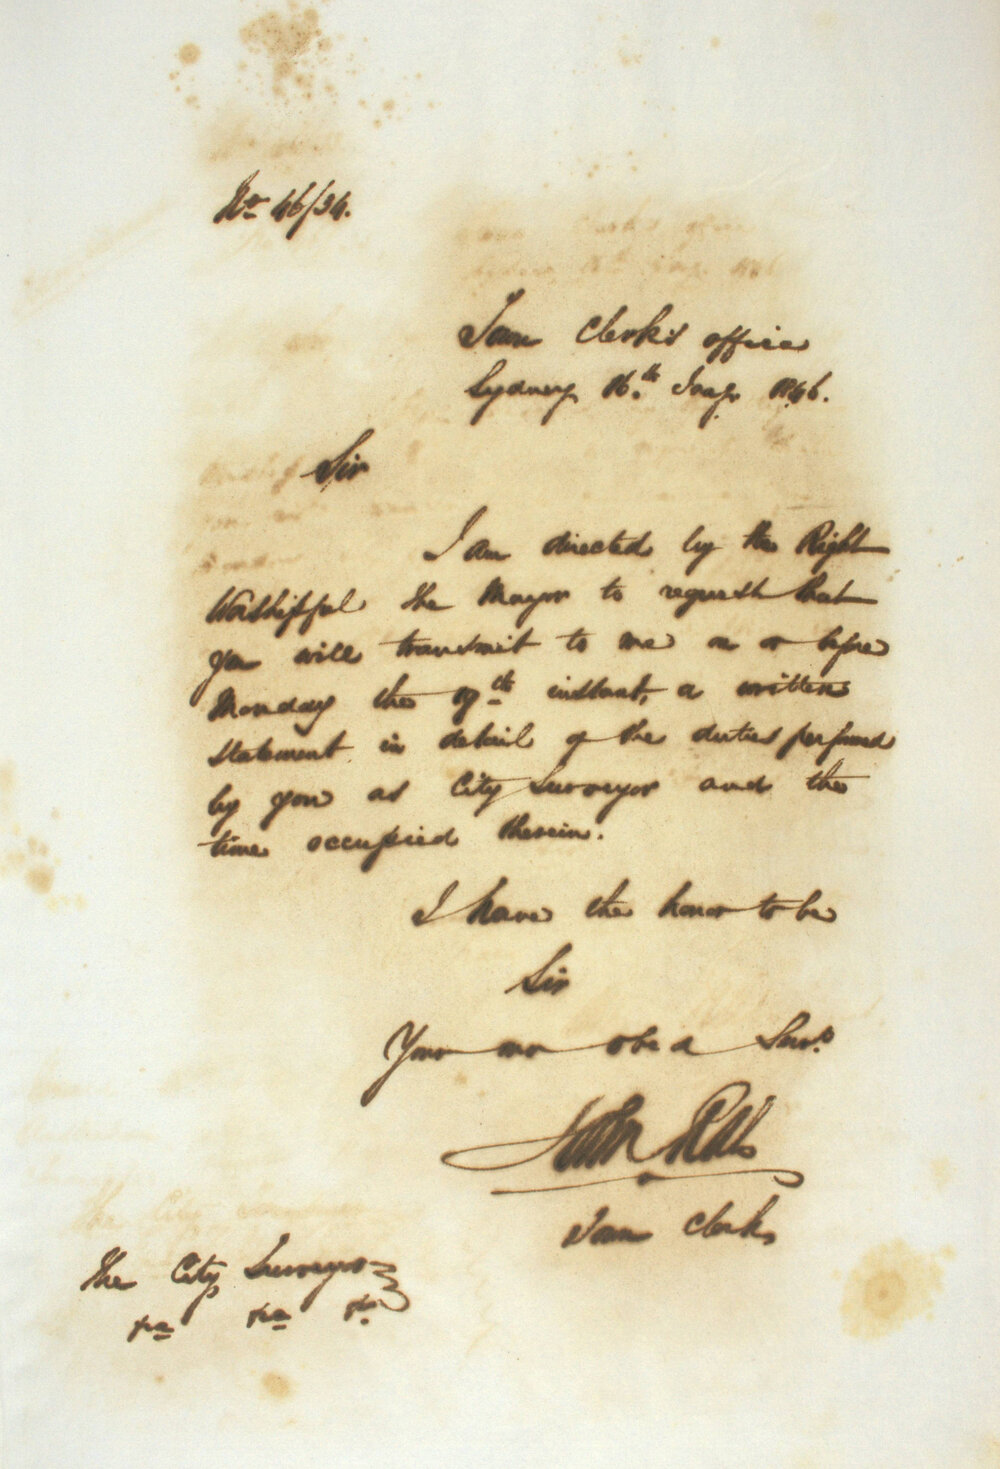 No 46/34.
Town Clerk's office
Sydney 16.th Jany. 1846.
Sir
I am directed by the Right
Worshipful the Mayor to request that
you will transmit to me on or before
Monday the 19th instant, a written
statement in detail of the duties performed
by you as City Surveyor and the
time occupied therein.
I have the honor to be
Sir
Your mo obed Serv.t
John
Town Clerk
The City Surveyor
&c &c &c.